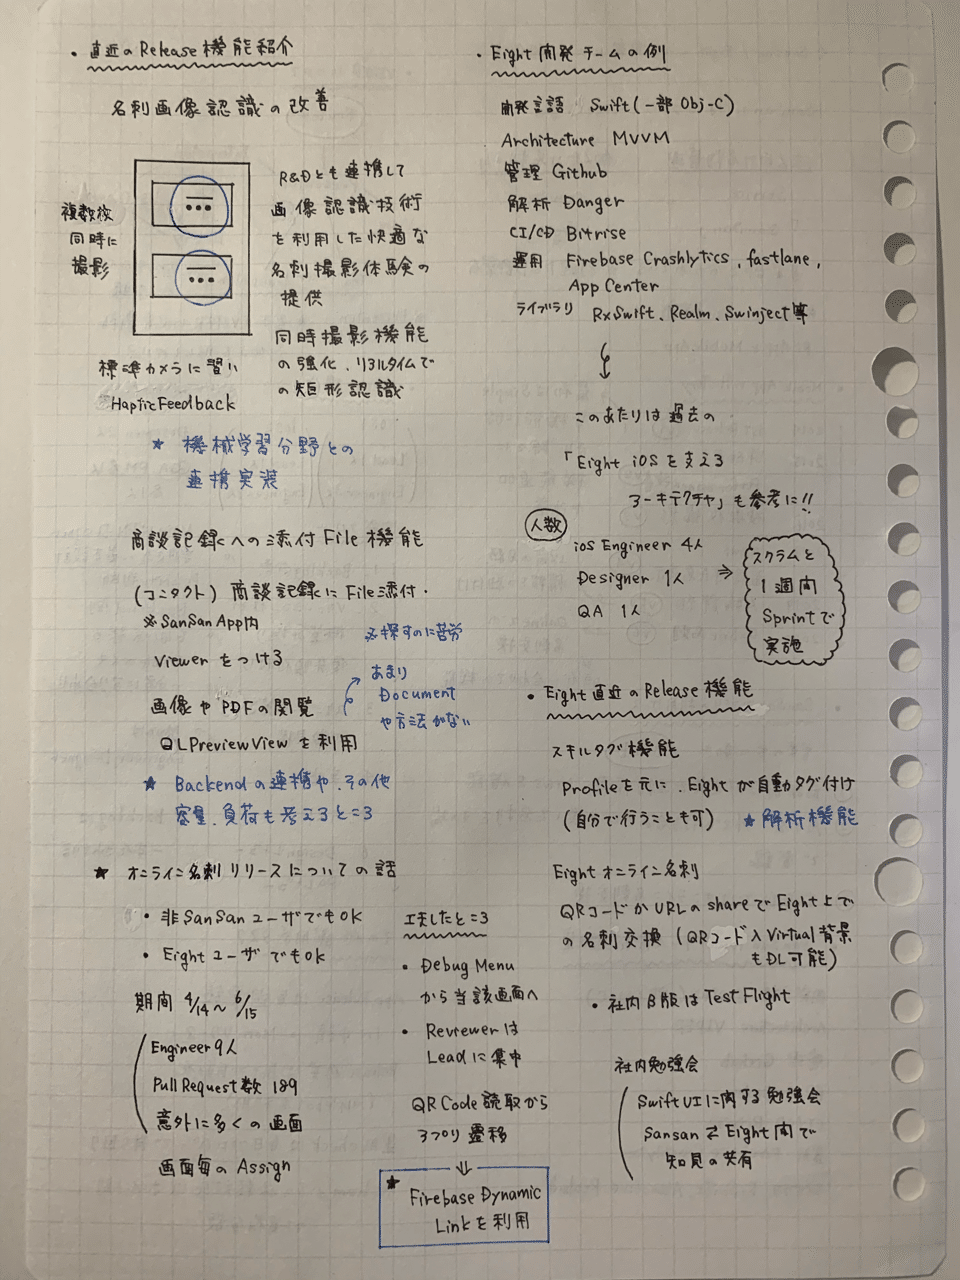 ・直近のRelease機能紹介
名刺画像認識の改善
複数枚
同時に
撮影
R&Dとも連携して
画像認識技術
を利用した快適な
名刺撮影体験の
提供
同時撮影機能
の強化、リアルタイムで
の矩形認識
標準カメラに習い
HapticFeedback
★ 機械学習分野との
連携実装
商談記録への添付File機能
(コンタクト) 商談記録にFile添付・
※SanSanApp内
Viewerをつける
画像やPDFの閲覧
QLPreviewViewを利用
※探すのに苦労
あまり
Document
や方法がない
★ Backendの連携や、その他
容量、負荷も考えるところ
★ オンライン名刺リリースについての話
・非SanSanユーザでもOK
・EightユーザでもOK
期間 4/14〜6/15
Engineer9人
PullRequest数 189
意外に多くの画面
画面毎のAssign
工夫したところ
・Debug Menu
から当該画面へ
・Reviewerは
Leadに集中
QRCode読取から
アプリ遷移
★ Firebase Dynamic
Linkを利用
・Eight開発チームの例
開発言語 Swift(一部Obj-C)
Architecture MVVM
管理 Github
解析 Danger
CI/CD Bitrise
運用 Firebase Crashlytics、fastlane,
App Center
ライブラリ RxSwift、Realm、Swinject等
このあたりは過去の
「Eight iOSを支える
アーキテクチャ」も参考に!!
人数
iOS Engineer 4人
Designer 1人
QA 1人
⇒
スクラムと
1週間
Sprintで
実施
・Eight直近のRelease機能
スキルタグ機能
Profileを元に、Eightが自動タグ付け
(自分で行うことも可) ★解析機能
Eightオンライン名刺
QRコードかURLのshareでEight上で
の名刺交換 (QRコード入Virtual背景
もDL可能)
・社内β版はTestFlight
社内勉強会
SwiftUIに関する勉強会
Sansan⇄Eight間で
知見の共有